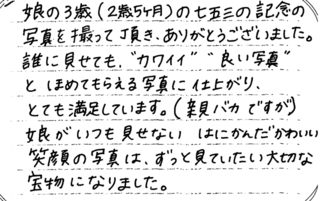 娘の3歳(2歳5ヶ月)の七五三の記念の
写真を撮って頂き、ありがとうございました。
誰に見せても、"カワイイ" "良い写真"
とほめてもらえる写真に仕上がり、
とても満足しています。(親バカですが)
娘がいつも見せない はにかんだかわいい
笑顔の写真は、ずっと見ていたい大切な
宝物になりました。